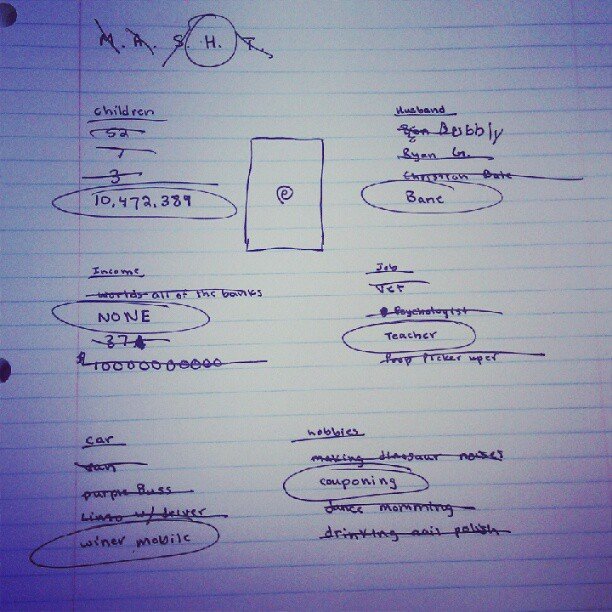 M. A. S. H. T.
children
52
1
3
10,472,389
Husband
Bubbly
Ryan G.
Christian Bale
Bane
e
Income
worlds all of the banks
NONE
37¢
$10000000000
Job
Vet
Psychologist
Teacher
Poop Picker uper
car
van
purple Buss
Limo w/ driver
winer mobile
hobbies
making dinosaur noises
couponing
dance momming
drinking nail polish